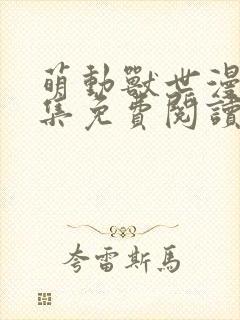 萌動獸世漫
集免費閱讀
夸雷斯馬